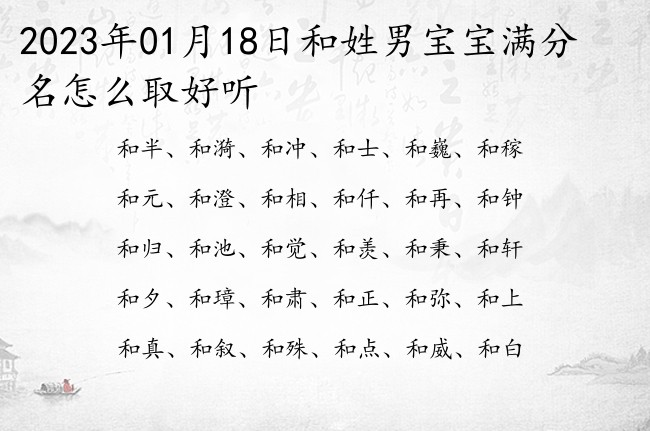 2023年01月18日和姓男宝宝满分
名怎么取好听
和半、和漪、和冲、和士、和巍、和稼
和元、和澄、和相、和仟、和再、和钟
和归、和池、和觉、和羡、和秉、和轩
和夕、和璋、和肃、和正、和弥、和上
和真、和叙、和殊、和点、和威、和白